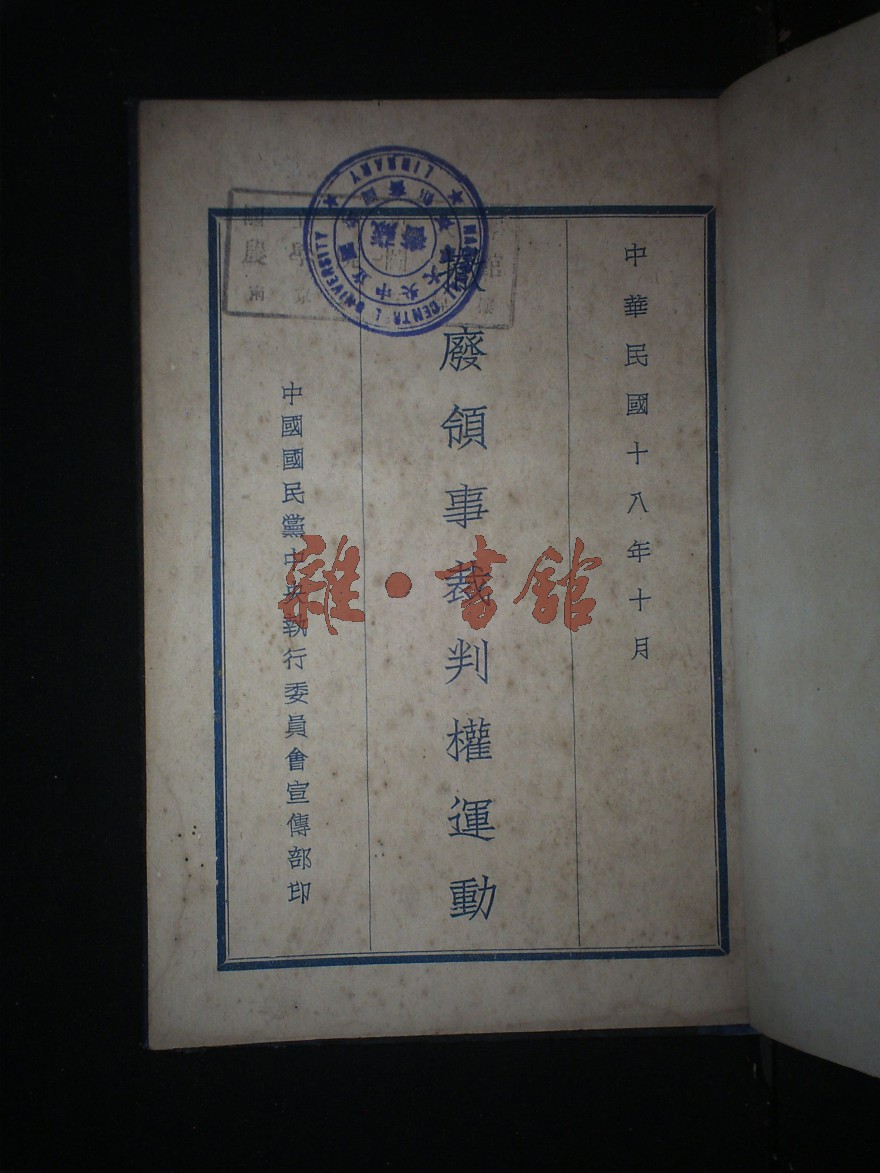 中華民國十八年十月
撤廢領事裁判權運動
中國國民黨中央執行委員會宣傳部印
雜·書館
NATIONAL CENTRAL UNIVERSITY LIBRARY
國立中央大學圖書館
藏書